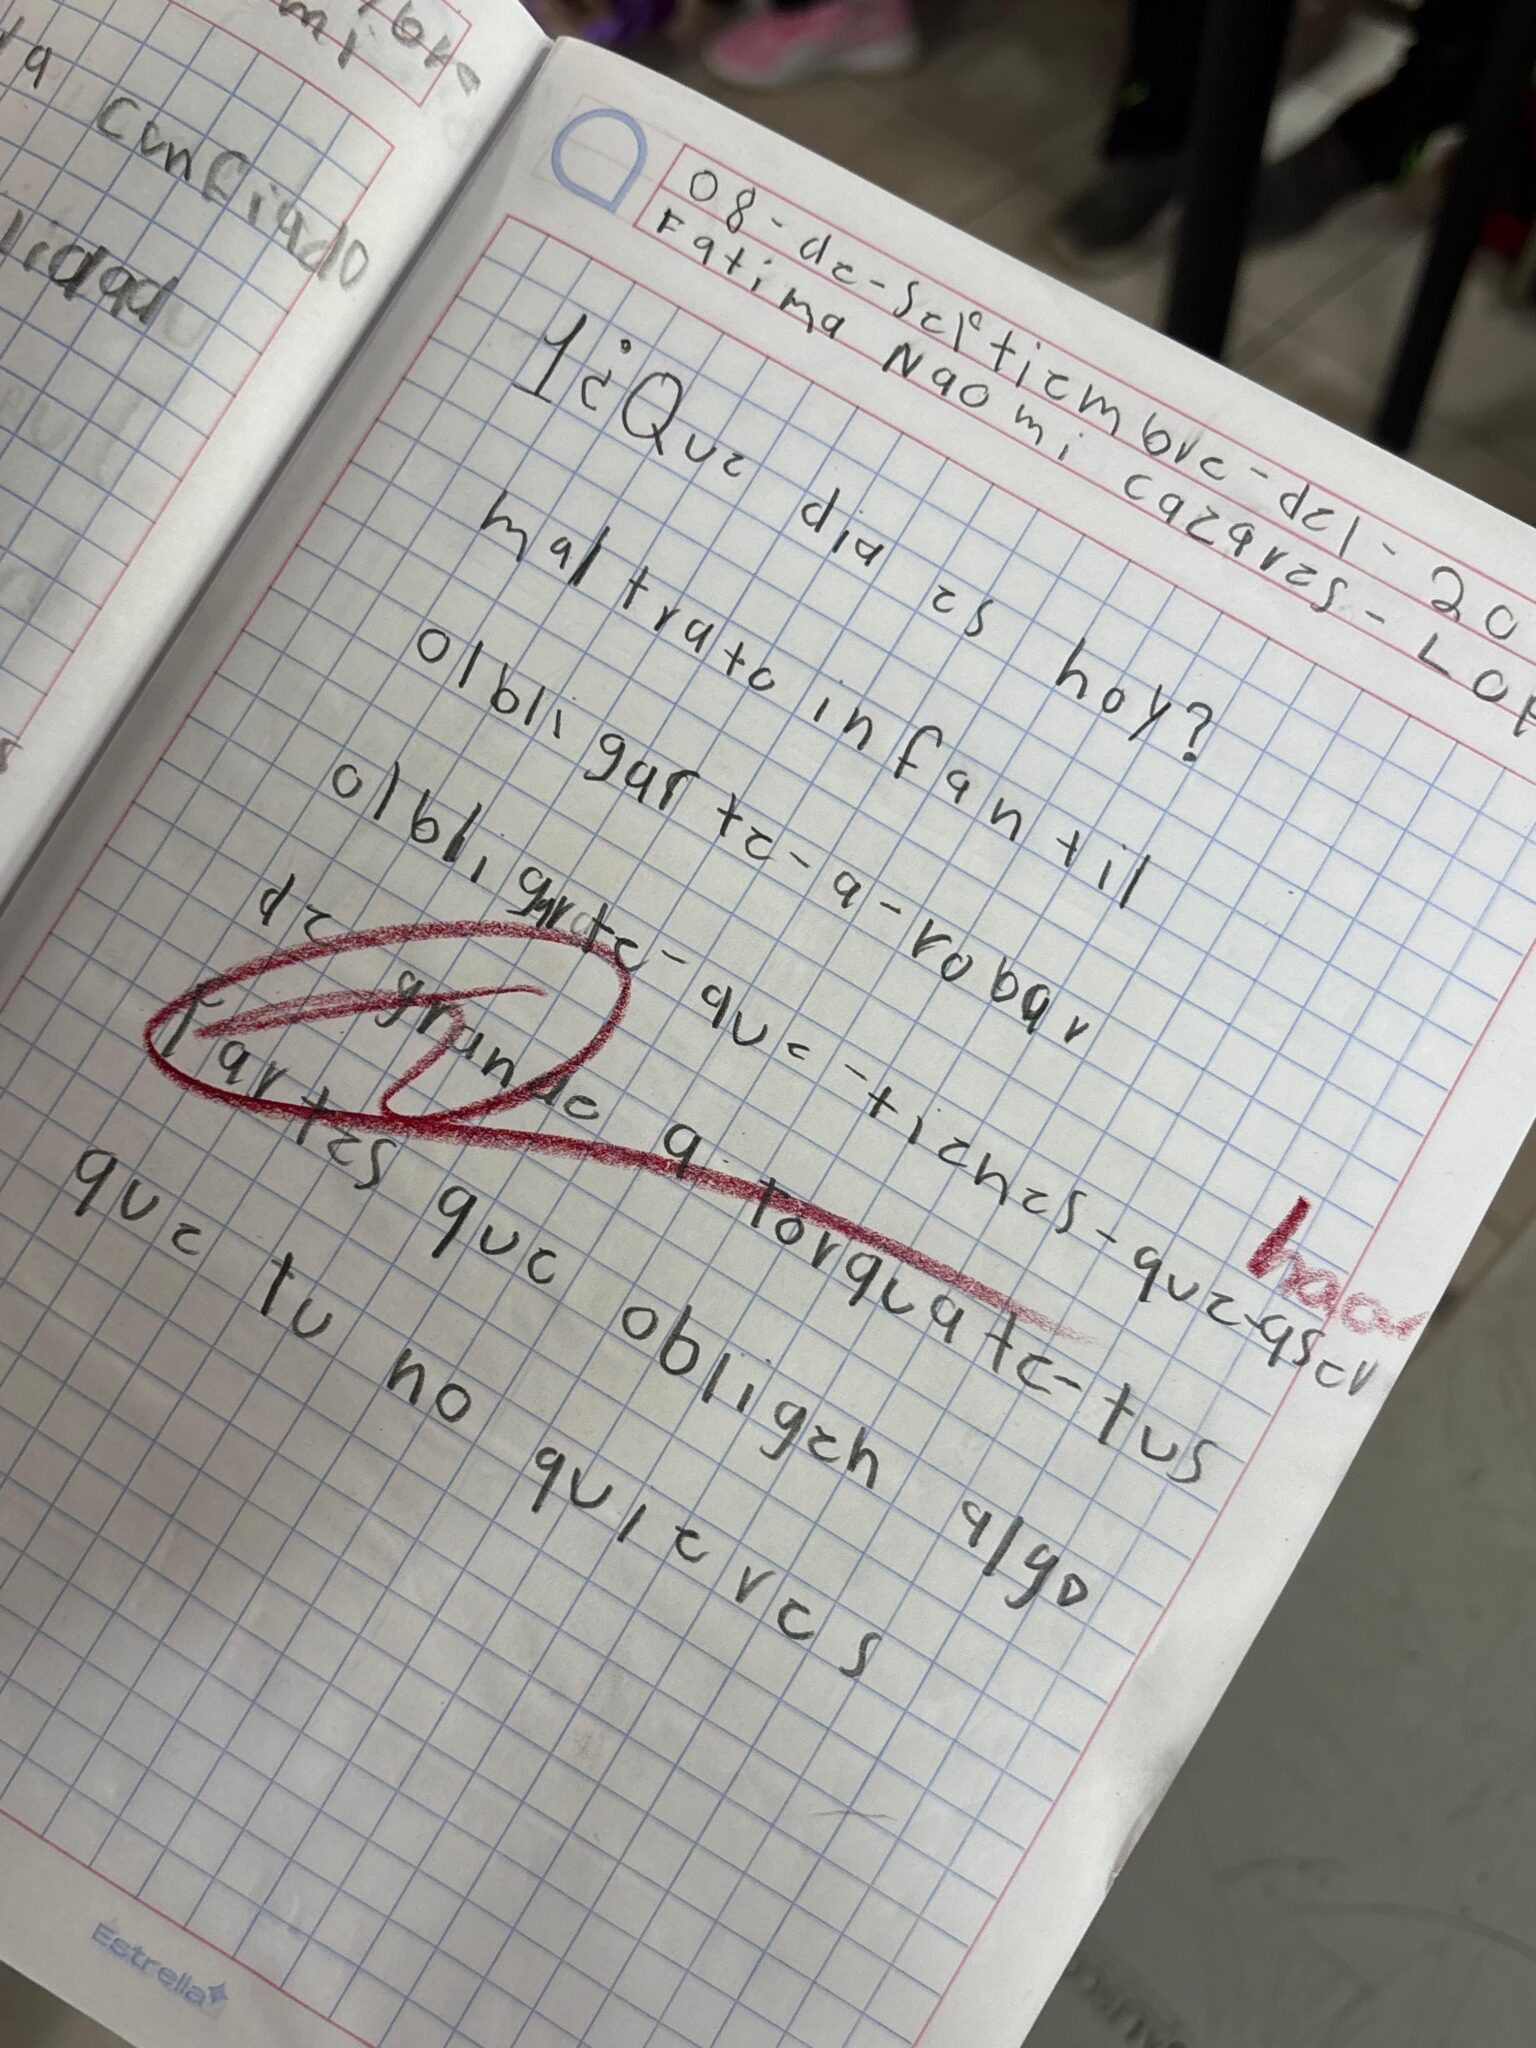 ta confiado
lidad
08-de-septiembre-del-20
Fatima Naomi cazares-Lop
1¿Que dia es hoy?
maltrato infantil
olbligarte-a-robar
olbligarte-que-tienes-que-aser
hacer
de grande a torquate-tus
Partes que obligen algo
que tu no quieres
Estrella